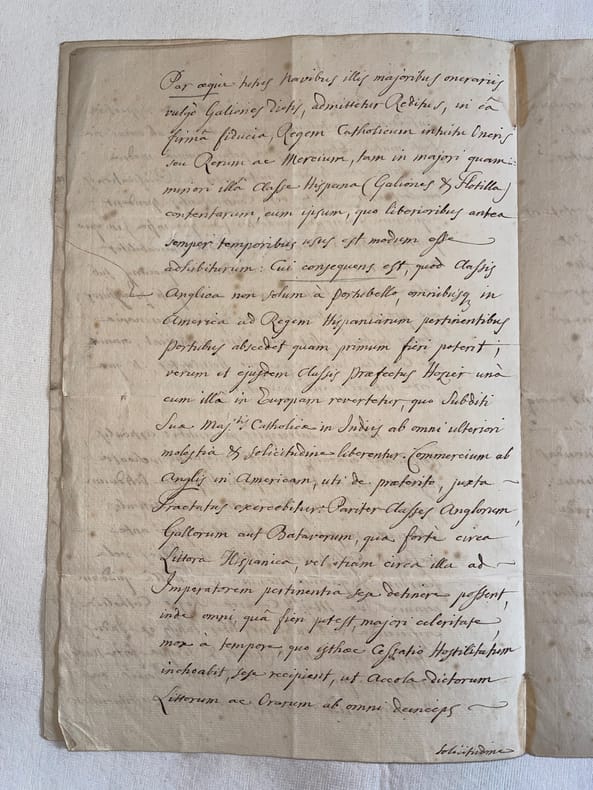 Par æque hisce navibus illis majoribus onerariis
vulgò Galiones dictis, admittetur Reditus, in eâ
firmâ fiduciâ, Regem Catholicum intuitu Oneris
seu Rerum ac Mercium, tam in majori quam
minori illâ Classe Hispana (Galiones & Flotilla)
contentarum, eum ipsum, quo liberioribus antea
semper temporibus usus est modum esse
adhibiturum: Cui consequens est, quòd Classis
Anglica non solum à Portobello, omnibusq in
America ad Regem Hispaniarum pertinentibus
Portubus abscedet quam primum fieri poterit;
verum et ejusdem Classis Præfectus Hozier unà
cum illâ in Europam revertetur, quo Subditi
Suæ Maj:tis Catholicæ in Indiis ab omni ulteriori
molestiâ & solicitudine liberentur. Commercium ab
Anglis in Americam, uti de præterito, juxta
Tractatus exercebitur: Pariter Classes Anglorum,
Gallorum aut Batavorum, quæ fortè circa
Littora Hispanica, vel etiam circa illa ad
Imperatorem pertinentia sese detinere possent,
inde omni, quâ fieri potest, majori celeritate,
mox à tempore, quo isthæc Cessatio Hostilitatum
inchoabit, sese recipient, ut Accolæ dictorum
Littorum ac Orarum ab omni deinceps
solicitudine